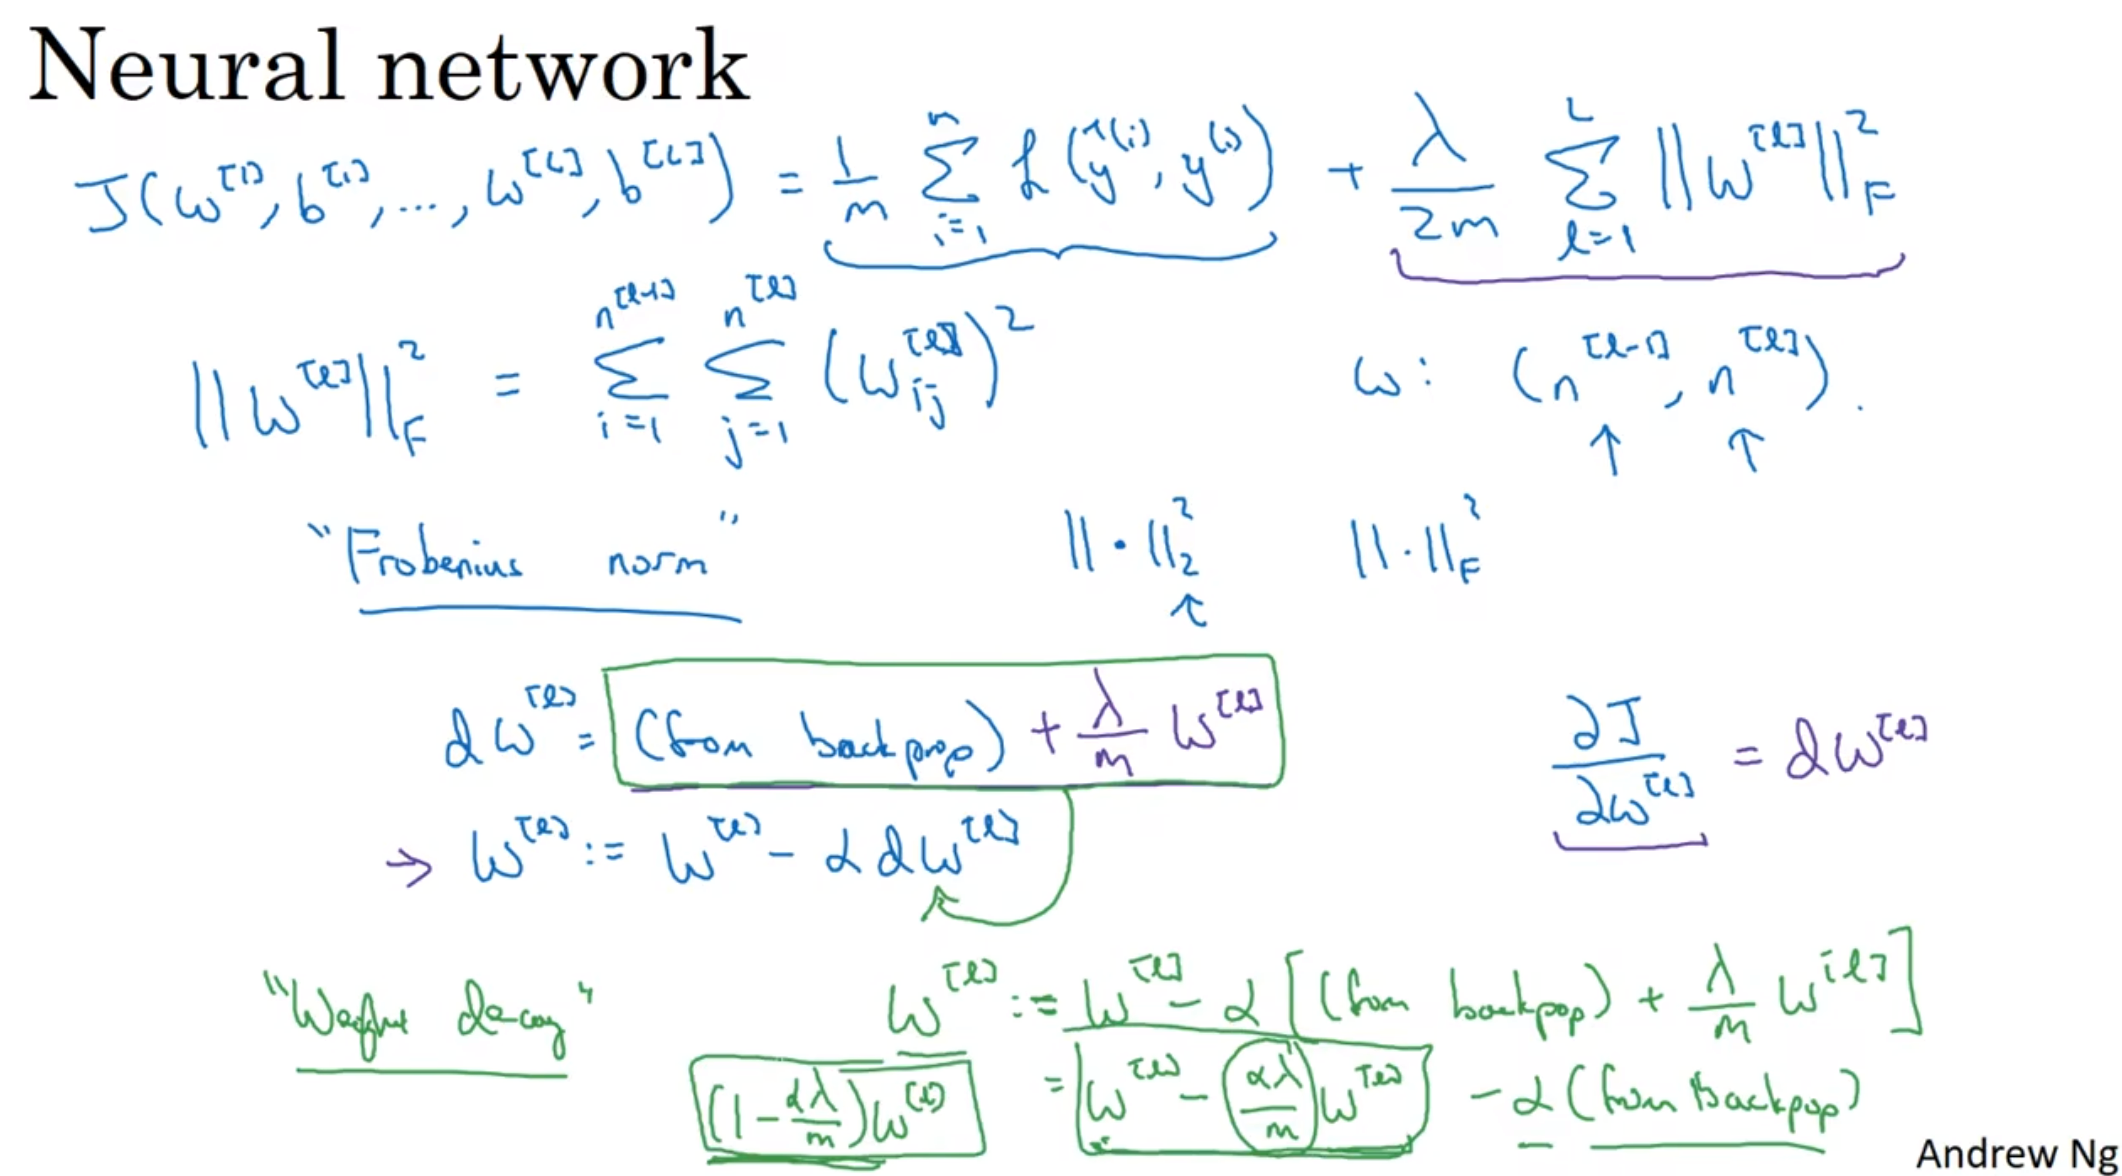 Neural network
J(w^[1], b^[1], ..., w^[L], b^[L]) = 1/m Σ_{i=1}^{m} L(ŷ^(i), y^(i)) + λ/2m Σ_{l=1}^{L} ||w^[l]||_F^2
||w^[l]||_F^2 = Σ_{i=1}^{n^[l-1]} Σ_{j=1}^{n^[l]} (w_ij^[l])^2    w: (n^[l-1], n^[l]).
↑ ↑
"Frobenius norm"    ||·||_2^2    ||·||_F^2
↑
dw^[l] = (from backprop) + λ/m w^[l]    ∂J/∂w^[l] = dw^[l]
→ w^[l] := w^[l] - α dw^[l]
"Weight decay"    w^[l] := w^[l] - α [(from backpop) + λ/m w^[l]]
(1 - αλ/m) w^[l]    = w^[l] - αλ/m w^[l] - α (from backpop)
Andrew Ng